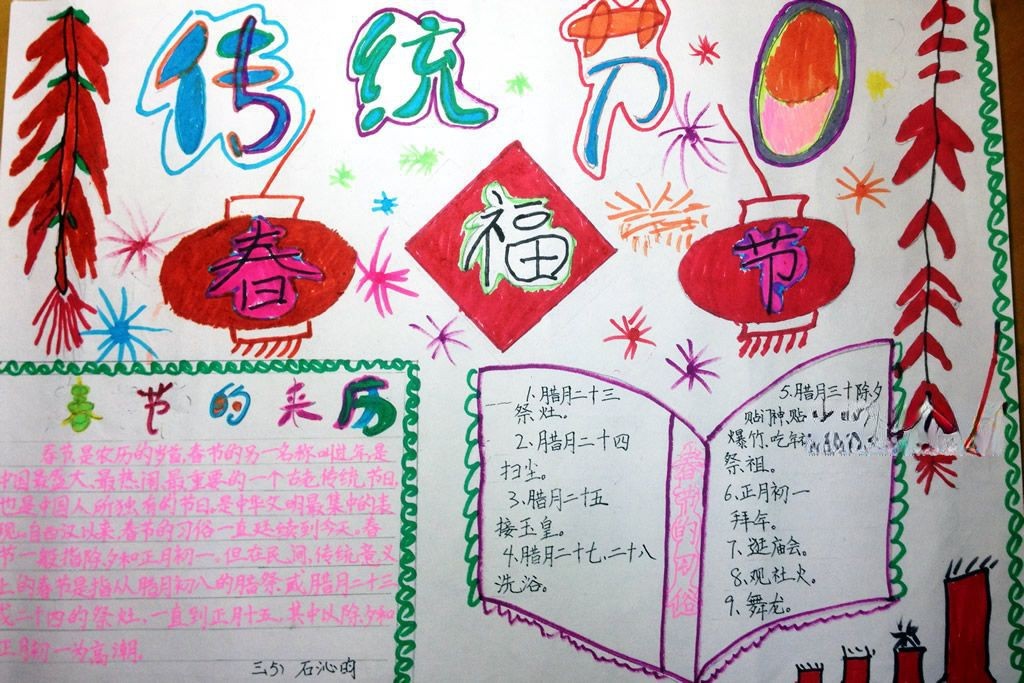 传统节日
春 福 节
春节的来历
春节是农历的岁首,春节的另一名称叫过年,是
中国最盛大、最热闹、最重要的一个古老传统节日
也是中国人所独有的节日。是中华文明最集中的表
现。自西汉以来,春节的习俗一直延续到今天。春
节一般指除夕和正月初一。但在民间,传统意义
上的春节是指从腊月初八的腊祭或腊月二十三
或二十四的祭灶,一直到正月十五,其中以除夕和
正月初一为高潮。
三5) 石沁昀
1.腊月二十三
祭灶。
2.腊月二十四
扫尘。
3.腊月二十五
接玉皇。
4.腊月二十七、二十八
洗浴。
春节的风俗
5.腊月三十除夕
贴门神,贴
爆竹,吃年
祭祖。
6.正月初一
拜年。
7.逛庙会。
8.观社火。
9.舞龙。